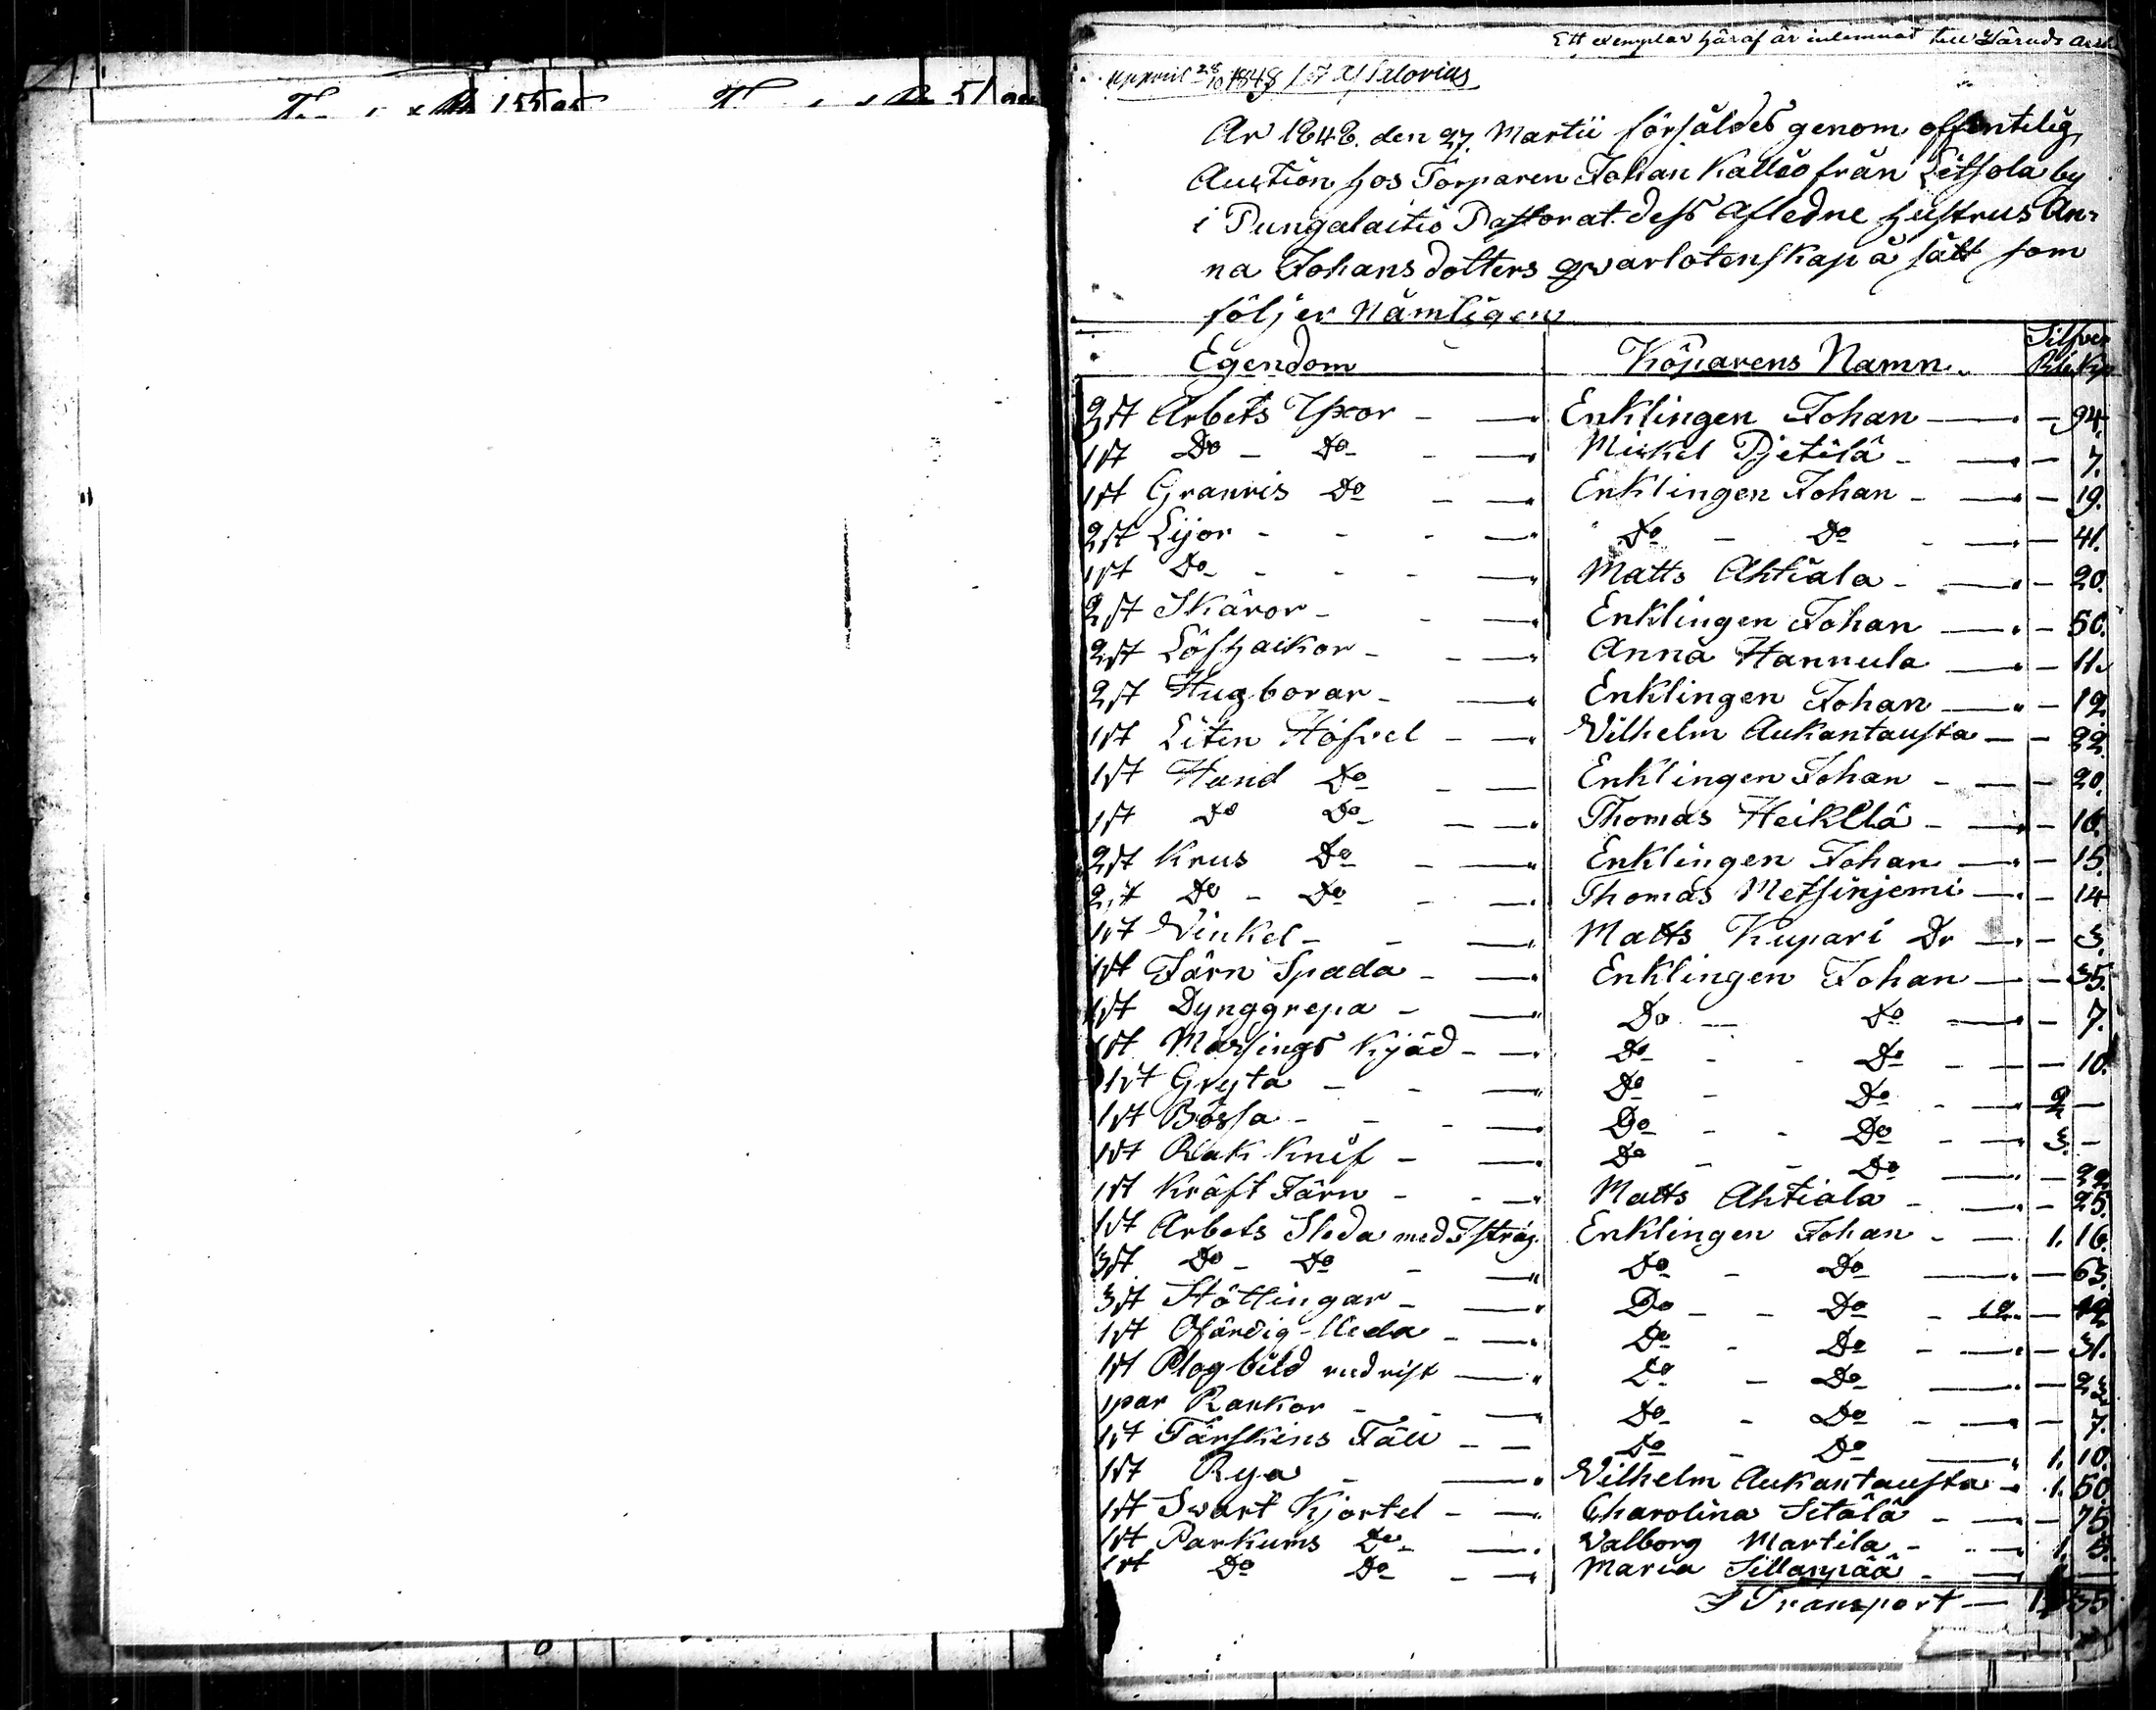 Ett exemplar häraf är inlemnad till Härads
1848
År 1848. den 27. Martii försåldes genom offentelig
Auction hos Torparen Johan Kallio från Litsola by
i Pungalaitio Pastorat dess afledne hustrus An-
na Johans dotters qvarlotenskap å sätt som
följer Nämligen
Egendom Köparens Namn. Silfver
Rbl. Kp
2st Arbets Yxor - — Enklingen Johan — — 94.
1st Do - Do - — Mickel Pjetilä - — — 7.
1st Granris Do - — Enklingen Johan - — — 19.
2st Lijor - - - — Do - Do - — — 41.
1st Do - - - - — Matts Ahtiala - — — 20.
2st Skäror - - — Enklingen Johan — — 50.
2st Löfhaikor - - — Anna Hannula — — 11.
2st Hugborar - — Enklingen Johan — — 12.
1st Liten Höfvel - — Vilhelm Aukantausta — — 22.
1st Hand Do - — Enklingen Johan - — — 20.
1st Do Do — — Thomas Heikllä - — — 16.
2st Krus Do - — Enklingen Johan — — 15.
2st Do - Do - — Thomas Metsinjemi — — 14
1st Vinkel - - — Matts Kupari Dr — — 3.
1st Järn Spada - — Enklingen Johan — — 35.
1st Dynggrepa - — Do — Do — — 7.
1st Mässings Kjäd - — Do - - Do - — — 10.
1st Gryta - - — Do - Do - — 2 —
1st Bössa - - - — Do - - Do - — 3. —
1st Rak Knif - — Do - - Do — — 22
1st Kräft Järn - - — Matts Ahtiala - — — 25.
1st Arbets Sleda med Enklingen Johan - — 1. 16.
3st Do - Do - — Do - Do — — 63.
3st Stöttingar - — Do - - Do - 12. — 12
1st Ofärdig Sleda - — Do - Do - — — 31.
1st Plog bild — Do - Do — — 23
1 par Rankor - - — Do - Do - — — 7.
1st Fårskins Fäll - — Do - Do — 1. 10.
1st Rya - — Vilhelm Aukantausta — 1. 50.
1st Swart Kjortel - — Charolina Sitälä - — — 75
1st Parkums Do - — Valborg Martila - - — 1. 5.
1st Do Do - — Maria Sillanpää - — 1. —
Transport — 35